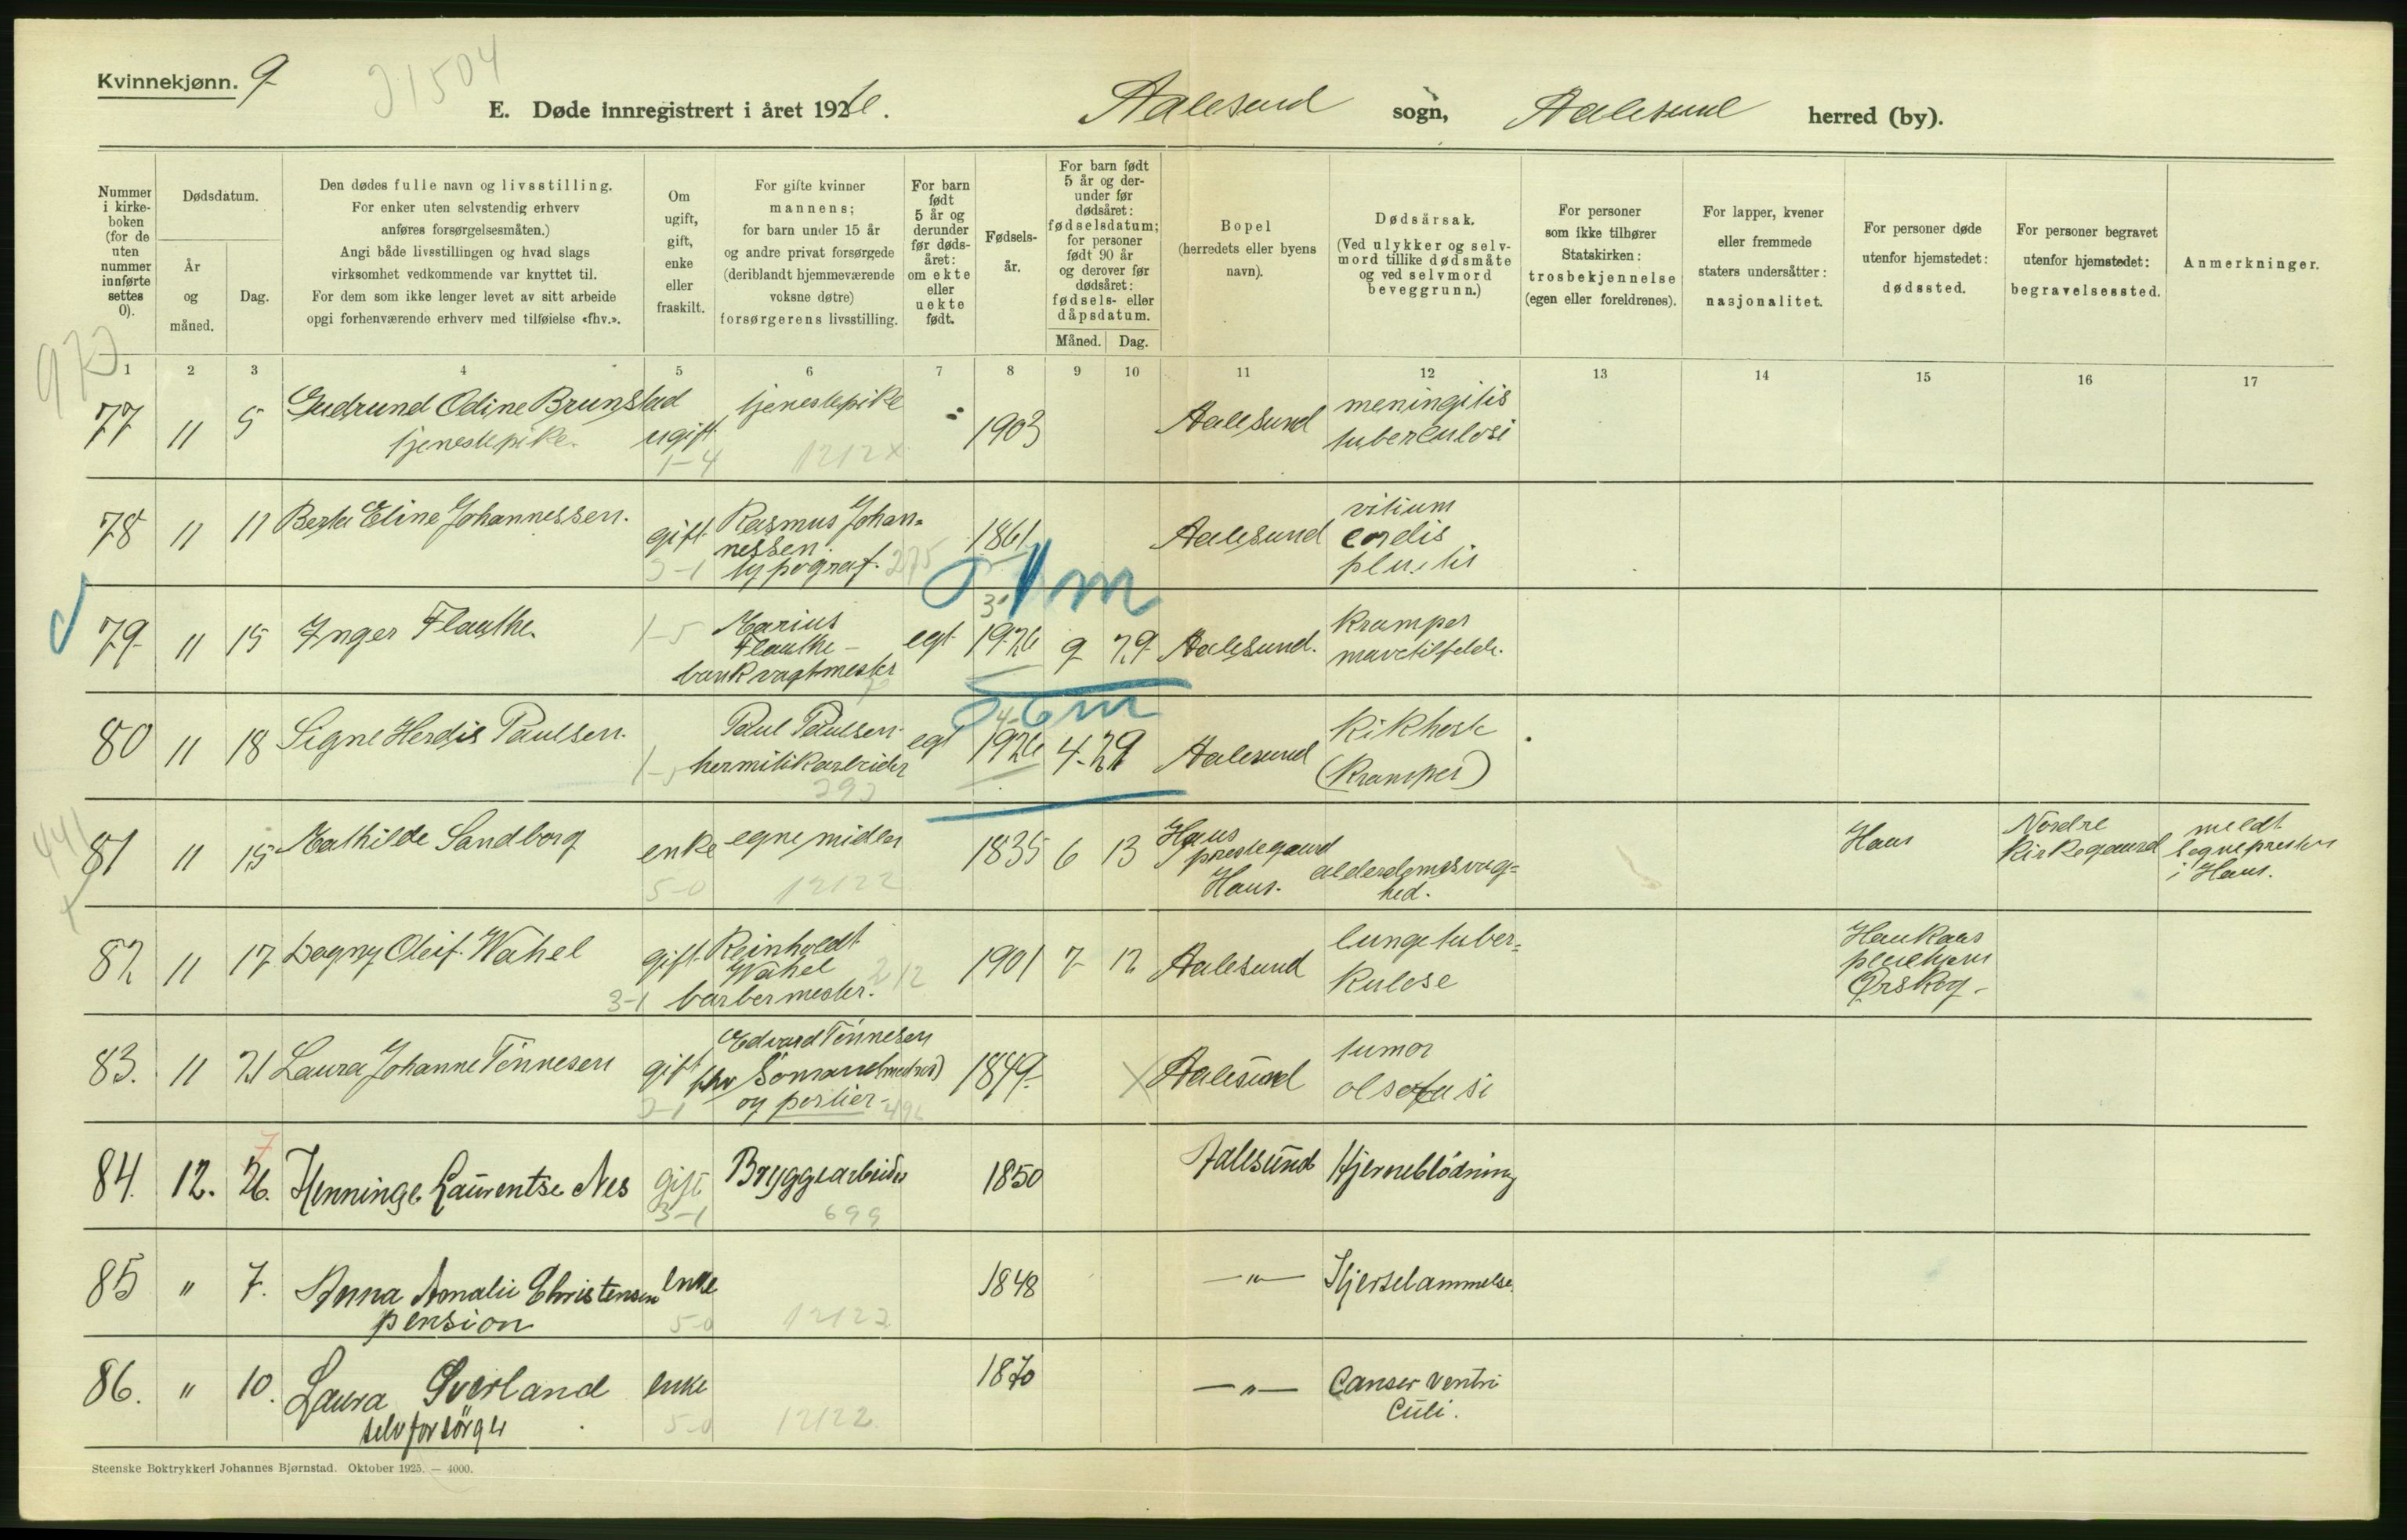 Kvinnekjønn. 9
21504
E. Døde innregistrert i året 1926.
Aalesund sogn, Aalesund herred (by).
Nummer i kirke-boken (for de uten nummer innførte settes 0).
Dødsdatum.
År og måned.
Dag.
Den dødes fulle navn og livsstilling.
For enker uten selvstendig erhverv
anføres forsørgelsesmåten.)
Angi både livsstillingen og hvad slags
virksomhet vedkommende var knyttet til.
For dem som ikke lenger levet av sitt arbeide
opgi forhenværende erhverv med tilføielse «fhv.».
Om ugift, gift, enke eller fraskilt.
For gifte kvinner
mannens;
for barn under 15 år
og andre privat forsørgede
(deriblandt hjemmeværende
voksne døtre)
forsørgerens livsstilling.
For barn født 5 år og derunder før døds-året: om ekte eller uekte født.
Fødsels-år.
For barn født 5 år og der-under før dødsåret: fødselsdatum; for personer født 90 år og derover før dødsåret: fødsels- eller dåpsdatum.
Måned. Dag.
Bopel
(herredets eller byens
navn).
Dødsårsak.
(Ved ulykker og selv-
mord tillike dødsmåte
og ved selvmord
beveggrunn.)
For personer
som ikke tilhører
Statskirken:
trosbekjennelse
(egen eller foreldrenes).
For lapper, kvener
eller fremmede
staters undersåtter:
nasjonalitet.
For personer døde
utenfor hjemstedet:
dødssted.
For personer begravet
utenfor hjemstedet:
begravelsessted.
Anmerkninger.
1 2 3 4 5 6 7 8 9 10 11 12 13 14 15 16 17
77 11 5 Gudrund Odine Brunstad tjenestepike. ugift tjenestepike 1903 Aalesund meningitis tuberculosi
1-4 1212 x
78 11 11 Berta Eline Johannessen. gift Rasmus Johan=nessen. typograf. 1861 Aalesund vitium cordis
3-1 275
1 m
79 11 15 Inger Flauthe 1-5 Marius Flauthe - bankvagtmester egt 1926 9 29 Aalesund. Kramper mavetilfelde.
6 m
80 11 18 Signe Herdis Paulsen. 1-5 Paul Paulsen hermitikarbeider egt 1926 4-29 Aalesund Kikhoste (Kramper)
393
441
81 11 15 Mathilde Sandborg enke egne midler 1835 6 13 Haus prestegaard Haus. alderdomssvag=hed. Haus Nordre Kirkegaard meldt sognepresten i Haus.
5-0 12122
82 11 17 Dagny Oleif. Wåhel gift Reinholdt Wåhel barbermester. 1901 7 12 Aalesund lungetuber=kulose Haukaas pleiehjem Ørskog-
3-1 212
83. 11 21 Laura Johanne Tönnesen gift Edvard Tönnesen fhv Sömand og portier- 1849- Aalesund tumor
3-1 492
84. 12. 26. 7 Henninge Laurentse Nes gift Bryggearbeider 1850 Aalesund Hjerneblödning
3-1 699
85 " 7. Anna Amalie Christensen pension enke 1848 —"— Hjertelammelse.
5-0 12122
86. " 10. Laura Sverland selvforsörger enke 1870 —"— Canser ventri culi.
5-0 12122
Steenske Boktrykkeri Johannes Bjørnstad. Oktober 1925. — 4000.